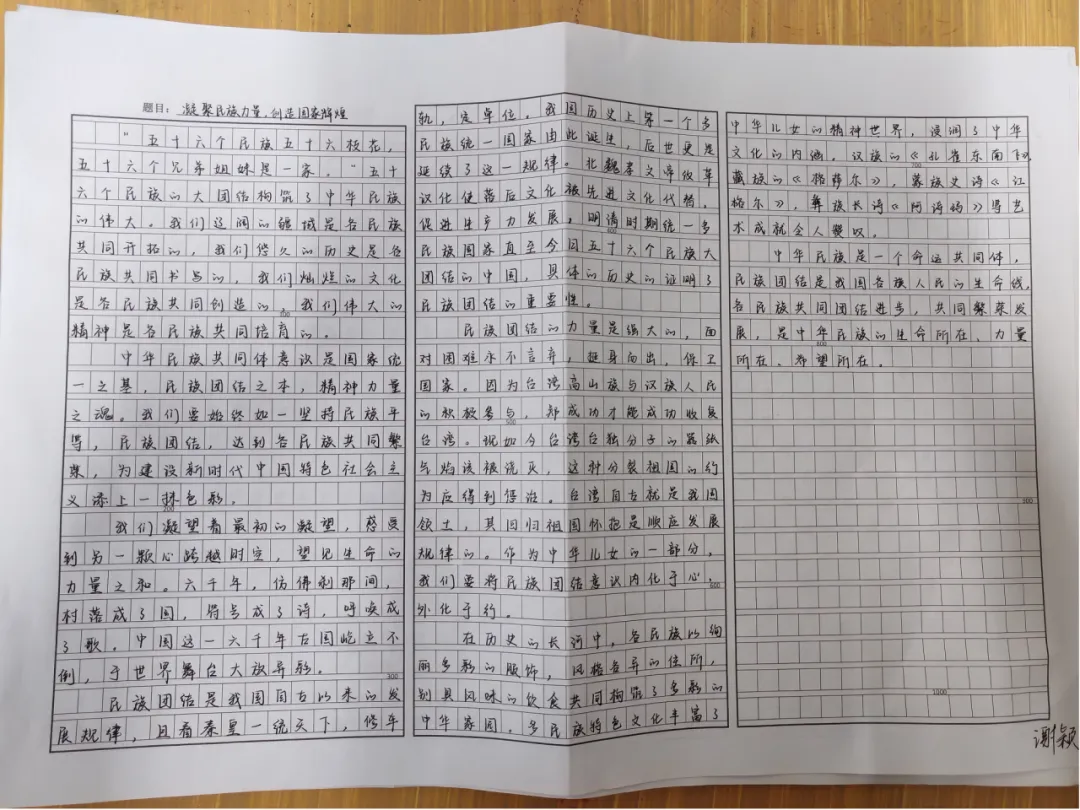 题目：凝聚民族力量，创造国家辉煌
“五十六个民族五十六枝花，
五十六个兄弟姐妹是一家。”五十
六个民族的大团结构筑了中华民族
的伟大。我们辽阔的疆域是各民族
共同开拓的，我们悠久的历史是各
民族共同书写的，我们灿烂的文化
是各民族共同创造的，我们伟大的
100
精神是各民族共同培育的。
中华民族共同体意识是国家统
一之基，民族团结之本，精神力量
之魂。我们要始终如一坚持民族平
等，民族团结，达到各民族共同繁
荣，为建设新时代中国特色社会主
义添上一抹色彩。
200
我们凝望着最初的凝望，感受
到另一颗心跨越时空，望见生命的
力量之和。六千年，仿佛刹那间，
村落成了国，符号成了诗，呼唤成
了歌。中国这一六千年古国屹立不
倒，于世界舞台大放异彩。
300
民族团结是我国自古以来的发
展规律，且看秦皇一统天下，修车
轨，定单位。我国历史上第一个多
民族统一国家由此诞生，后世更是
延续了这一规律。北魏孝文帝改革
汉化使落后文化被先进文化代替，
促进生产力发展，明清时期统一多
400
民族国家直至今日五十六个民族大
团结的中国，具体的历史的证明了
民族团结的重要性。
民族团结的力量是强大的，面
对困难永不言弃，挺身而出，保卫
国家。因为台湾高山族与汉族人民
的积极参与，郑成功才能成功收复
500
台湾。现如今台湾台独分子的嚣张
气焰该被浇灭，这种分裂祖国的行
为应得到惩治。台湾自古就是我国
领土，其回归祖国怀抱是顺应发展
规律的。作为中华儿女的一部分，
我们要将民族团结意识内化于心，
600
外化于行。
在历史的长河中，各民族以绚
丽多彩的服饰，风格各异的住所，
别具风味的饮食共同构筑了多彩的
中华家园。多民族特色文化丰富了
中华儿女的精神世界，浸润了中华
文化的内涵。汉族的《孔雀东南飞》
700
藏族的《格萨尔》，蒙族史诗《江
格尔》，彝族长诗《阿诗玛》等艺
术成就令人赞叹。
中华民族是一个命运共同体，
民族团结是我国各族人民的生命线，
各民族共同团结进步，共同繁荣发
展，是中华民族的生命所在、力量
800
所在、希望所在。
900
1000
谢颖